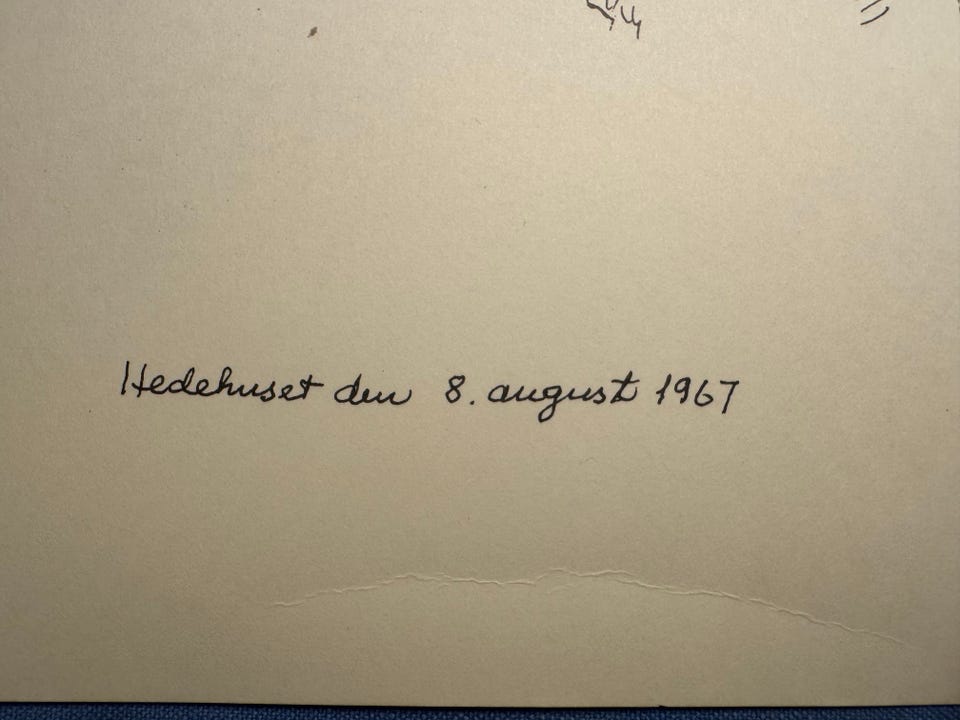 Hedehuset den 8. august 1967